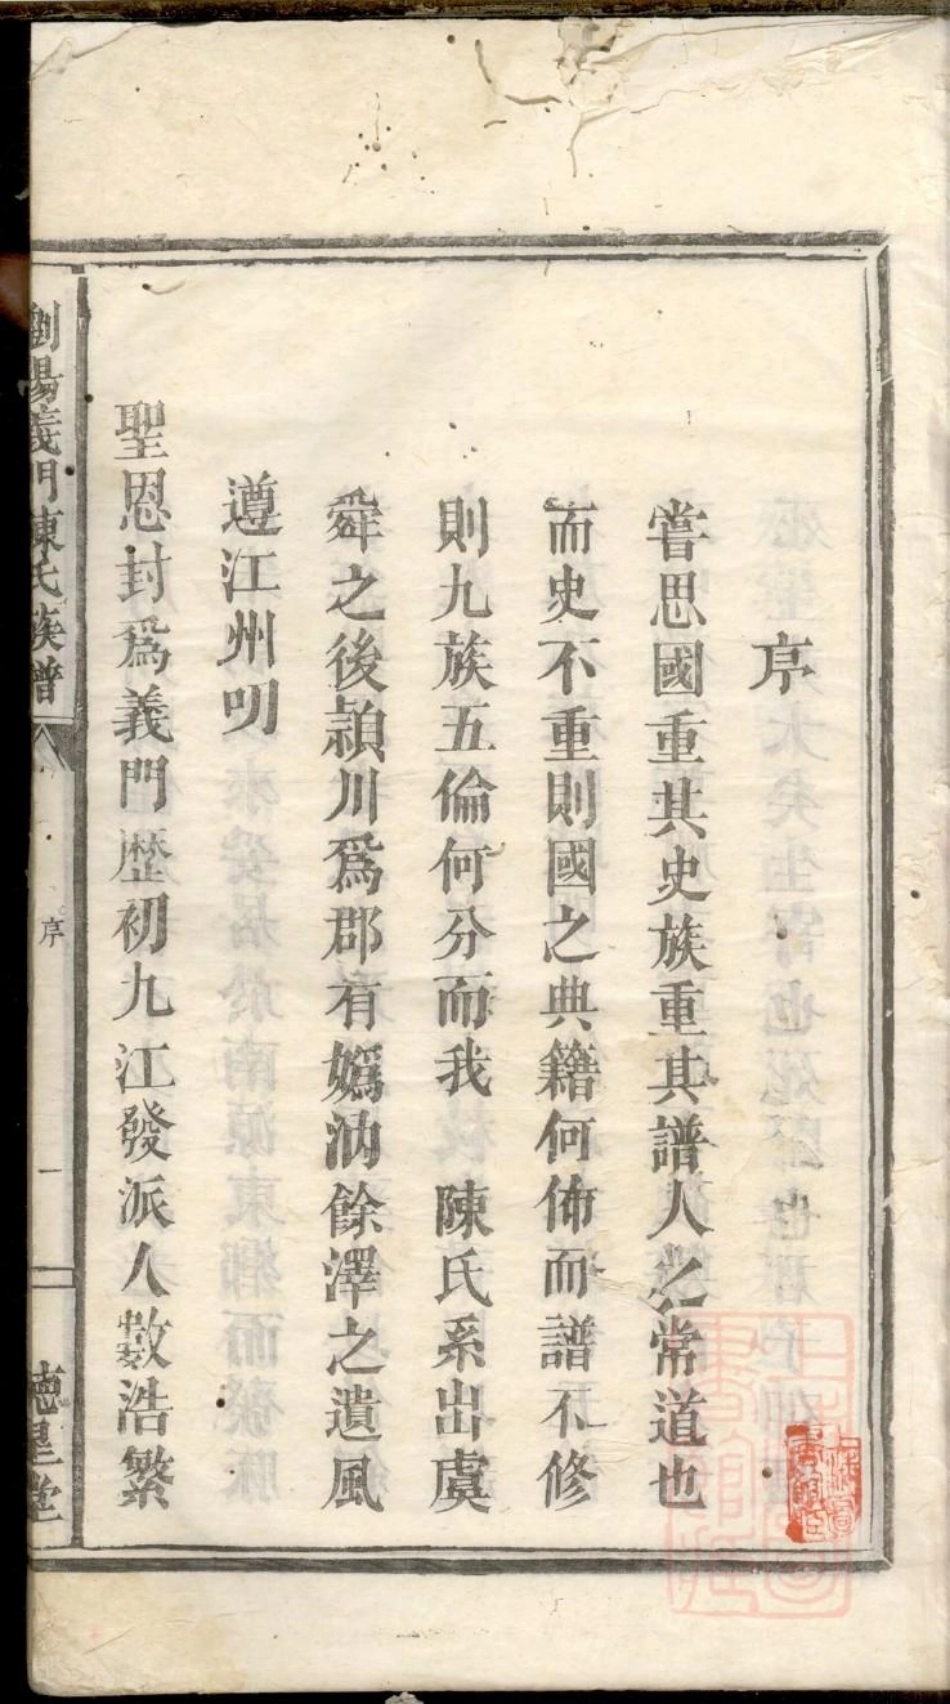 序
嘗思國重其史族重其譜人之常道也
而史不重則國之典籍何佈而譜不修
則九族五倫何分而我 陳氏系出虞
舜之後潁川爲郡有媯汭餘澤之遺風
遵江州叨
聖恩封爲義門歷初九江發派人數浩繁
瀏陽義門陳氏族譜
序
一
德星堂
上海圖書館藏